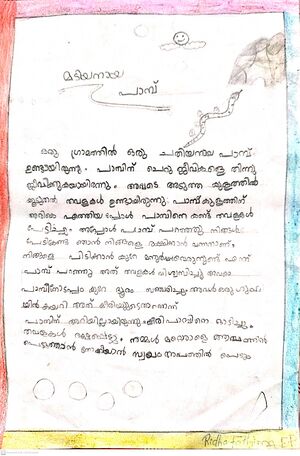 മടിയനായ
പാമ്പ്
ഒരു ഗ്രാമത്തിൽ ഒരു ചതിയനായ പാമ്പ്
ഉണ്ടായിരുന്നു. പാമ്പിന് ചെറു ജീവികളെ തിന്നു
ജീവിക്കുകയായിരുന്നു. അവടെ അടുത്ത കുളത്തിൽ
തവളകൾ ഉണ്ടായിരുന്നു. പാമ്പ് കുളത്തിന്
അരികെ എത്തിയപ്പോൾ പാമ്പിനെ കണ്ട് തവളകൾ
പേടിച്ചു. അപ്പോൾ പാമ്പ് പറഞ്ഞു. നിങ്ങൾ
പേടിക്കണ്ട ഞാൻ നിങ്ങളെ രക്ഷിക്കാൻ വന്നതാണ്.
നിങ്ങളെ പിടിക്കാൻ കുറേ വരുന്നുണ്ട് എന്ന്
പാമ്പ് പറഞ്ഞു അത് തവളകൾ വിശ്വസിച്ചു അവരെ
പാമ്പിനൊപ്പം കുറേ ദൂരം സഞ്ചരിച്ചു. അവർ ഒരു ഗുഹ
യിൽ കയറി അത് കീരിയുടെതാണെന്ന്
പാമ്പിന് അറിയില്ലായിരുന്നു. കീരി പാമ്പിനെ ഓടിച്ചു.
തവളകൾ രക്ഷപ്പെട്ടു. നമ്മൾ മറ്റൊരാളെ ആപത്തിൽ
പെടുത്താൻ നോക്കിയാൽ സ്വയം നാപത്തിൽ പെടും
Ridha fathima